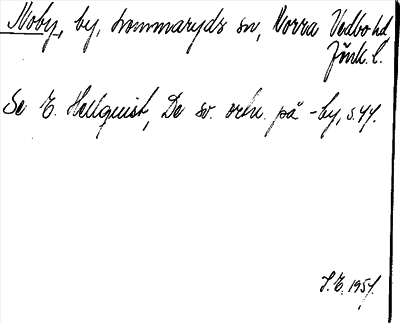 Noby, by, Lommaryds sn, Norra Vedbo hd,
Jönk. l.
Se E. Hellquist, De sv. ortn. på -by, s. 44.
J.E. 1954.